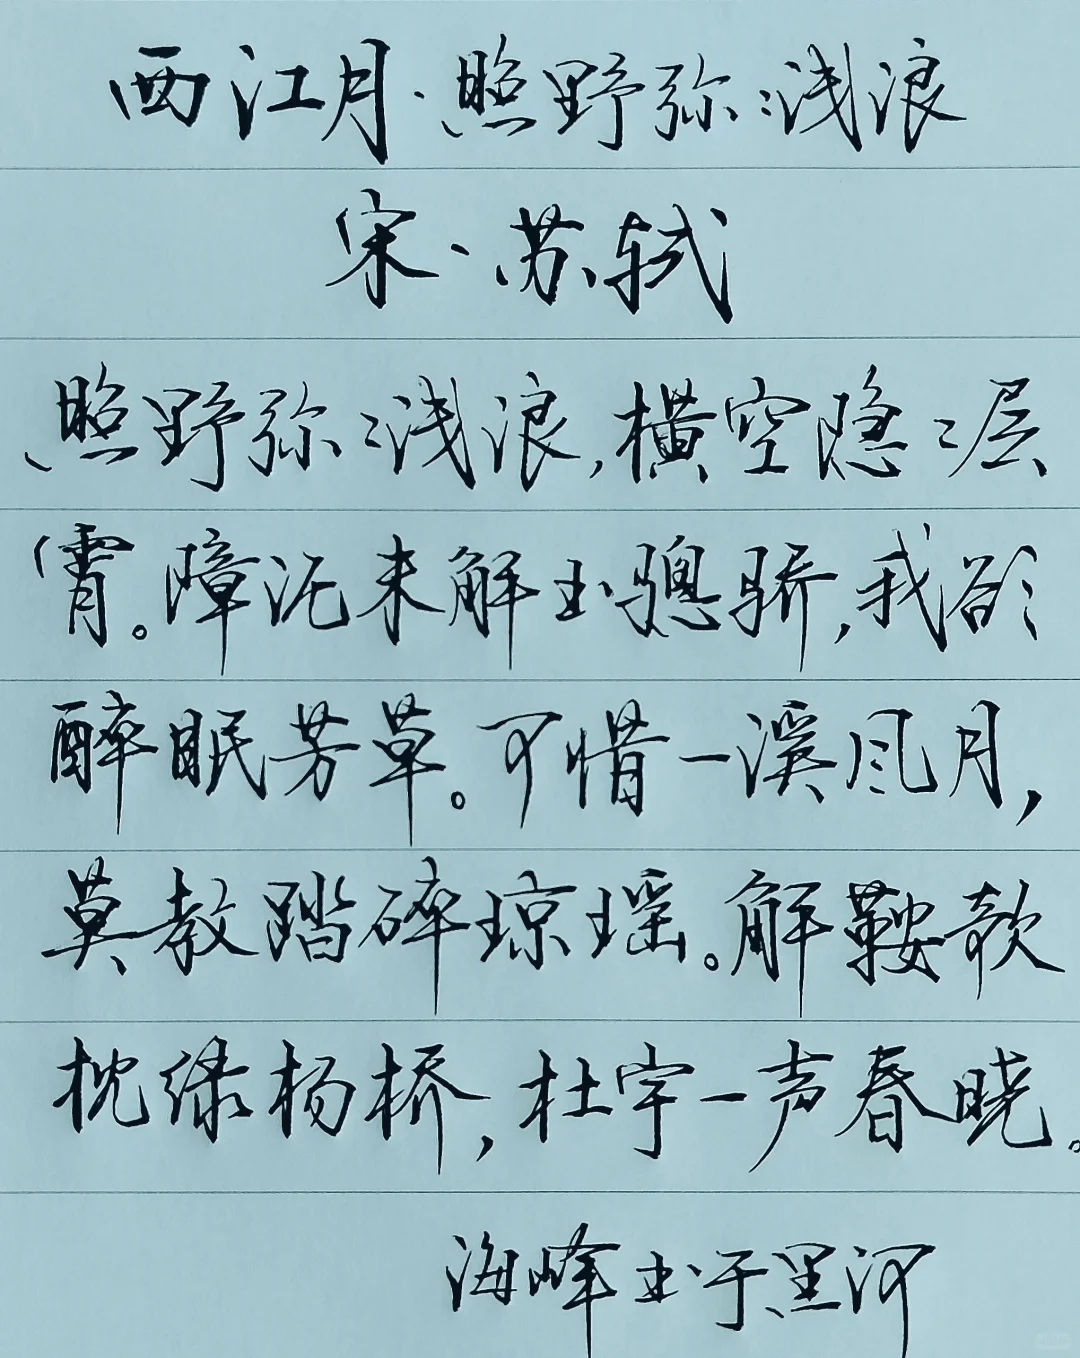 西江月·照野弥〻浅浪
宋·苏轼
照野弥〻浅浪,横空隐〻层
霄。障泥未解玉骢骄,我欲
醉眠芳草。可惜一溪风月,
莫教踏碎琼瑶。解鞍欹
枕绿杨桥,杜宇一声春晓。
海峰书于黑河